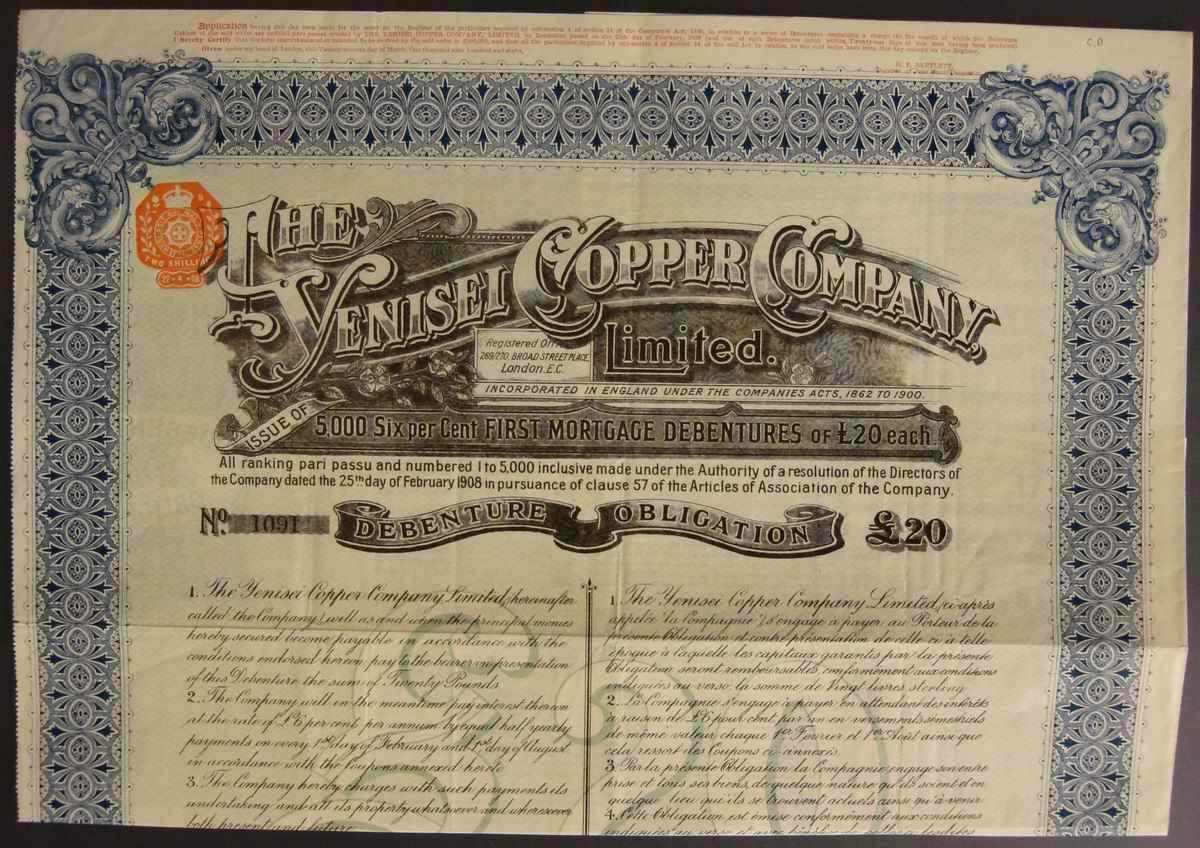 Application having this day been made for the entry on the Register of the particulars required by subsection 4 of section 14 of the Companies Act, 1900, in relation to a series of Debentures containing a charge
THE YENISEI COPPER COMPANY, LIMITED,
I Hereby Certify that
Given under my hand at London, this Twenty-seventh day of March, One thousand nine hundred and eight.
C.D
TWO SHILLINGS
THE
YENISEI COPPER COMPANY,
Limited.
Registered Off
269/270, BROAD STREET PLACE,
London. E.C.
INCORPORATED IN ENGLAND UNDER THE COMPANIES ACTS, 1862 TO 1900.
ISSUE OF
5,000 Six per Cent FIRST MORTGAGE DEBENTURES OF £20 each.
All ranking pari passu and numbered 1 to 5,000 inclusive made under the Authority of a resolution of the Directors of
the Company dated the 25th day of February 1908 in pursuance of clause 57 of the Articles of Association of the Company.
No 1091
DEBENTURE OBLIGATION
£20
1. The Yenisei Copper Company Limited, (hereinafter
called the Company) will as and when the principal monies
hereby secured become payable in accordance with the
conditions endorsed hereon pay to the bearer on presentation
of this Debenture the sum of Twenty Pounds
2. The Company will in the meantime pay interest thereon
at the rate of £6 per cent per annum by equal half yearly
payments on every 1st day of February and 1st day of August
in accordance with the Coupons annexed hereto
3. The Company hereby charges with such payments its
undertaking and all its property whatsoever and wheresoever
both present and future
1. The Yenisei Copper Company Limited, (ci-après
appelée la Compagnie) s'engage à payer au Porteur de la
présente Obligation et contre présentation de celle ci à telle
époque à laquelle les capitaux garantis par la présente
Obligation seront remboursables, conformement aux conditions
indiquées au verso la somme de Vingt livres sterling
2. La Compagnie s'engage à payer en attendant des intérêts
à raison de £6 pour cent par an en versements semestriels
de même valeur chaque 1er Février et 1er Août ainsi que
cela ressort des Coupons ci annexés.
3. Par la présente Obligation la Compagnie engage son entre
prise et tous ses biens, de quelque nature qu'ils soient et en
quelque lieu qu'ils se trouvent actuels ainsi qu'à venir
4. Cette Obligation est émise conformément aux conditions
indiquées au verso et avec